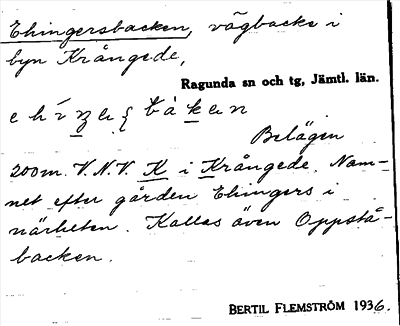 Ehingersbacken, vägbacke i
byn Krångede,
Ragunda sn och tg, Jämtl. län.
Belägen
200 m. V.N.V. K i Krångede. Nam-
net efter gården Ehingers i
närheten. Kallas även Oppstå-
backen.
BERTIL FLEMSTRÖM 1936.